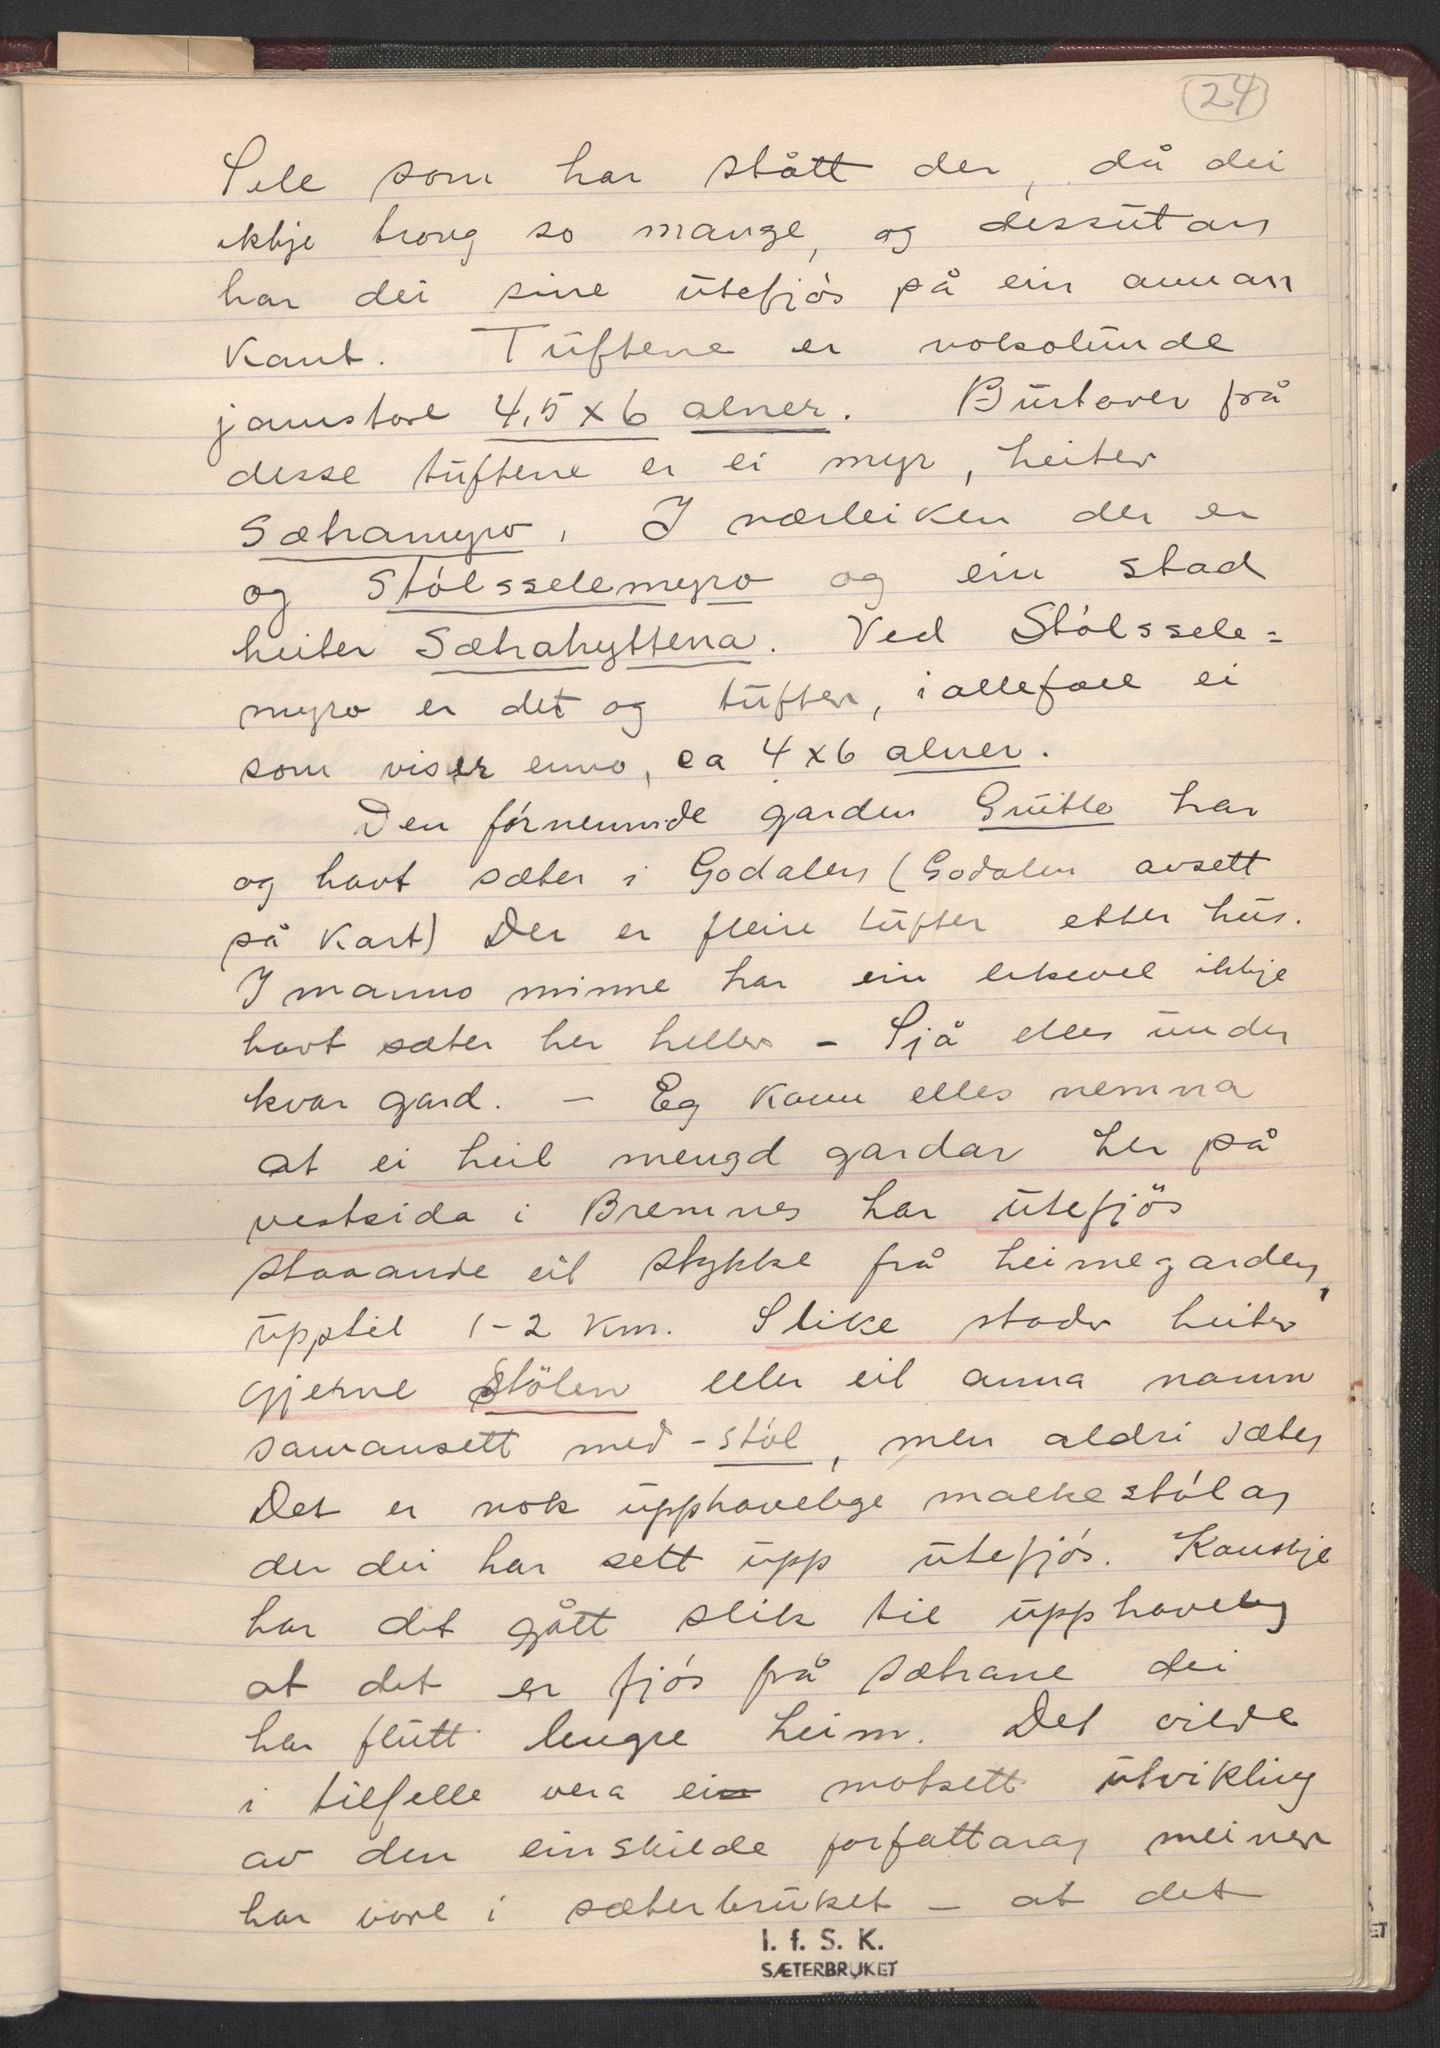 24
Sele som har stått der, då dei
ikkje trong so mange, og dessutan
har dei sine utefjós på ein annan
kant. Tuftene er voksolunde
jamstore 4,5 x 6 alner. Burtover frå
desse tuftene er ei myr, heiter
Sætramyro. I nærleiken der er
og Stólsselemyro og ein stad
heiter Sætrahyttena. Ved Stólssele=
myro er det og tufter, iallefall ei
som viser enno, ca 4 x 6 alner.
Den fórnemnde garden har
og havt sæter i Godalen (Godalen avsett
på kart) Der er fleire tufter etter hus.
I manns minne har ein likevel ikkje
havt sæter her heller - Sjå elles under
kvar gard. - Eg kann elles nemna
at ei heil mengd gardar her på
vestsida i Bremnes har utefjös
staaande eit stykke frå heimegarden,
upptil 1-2 km. Slike stader heiter
gjerne Stölen eller eit anna namn
samansett med -stól, men aldri sæter
Det er nok upphavelege mælkestólar
der dei har sett upp utefjós. Kanskje
har det gått slik til upphaveleg
at det er fjós frå sætrane dei
har flutt lengre heim. Det vilde
i tilfelle vera ein motsett utvikling
av den einskilde forfattarar meiner
har vore i sæterbruket - at det
I. f. S. K.
SÆTERBRUKET